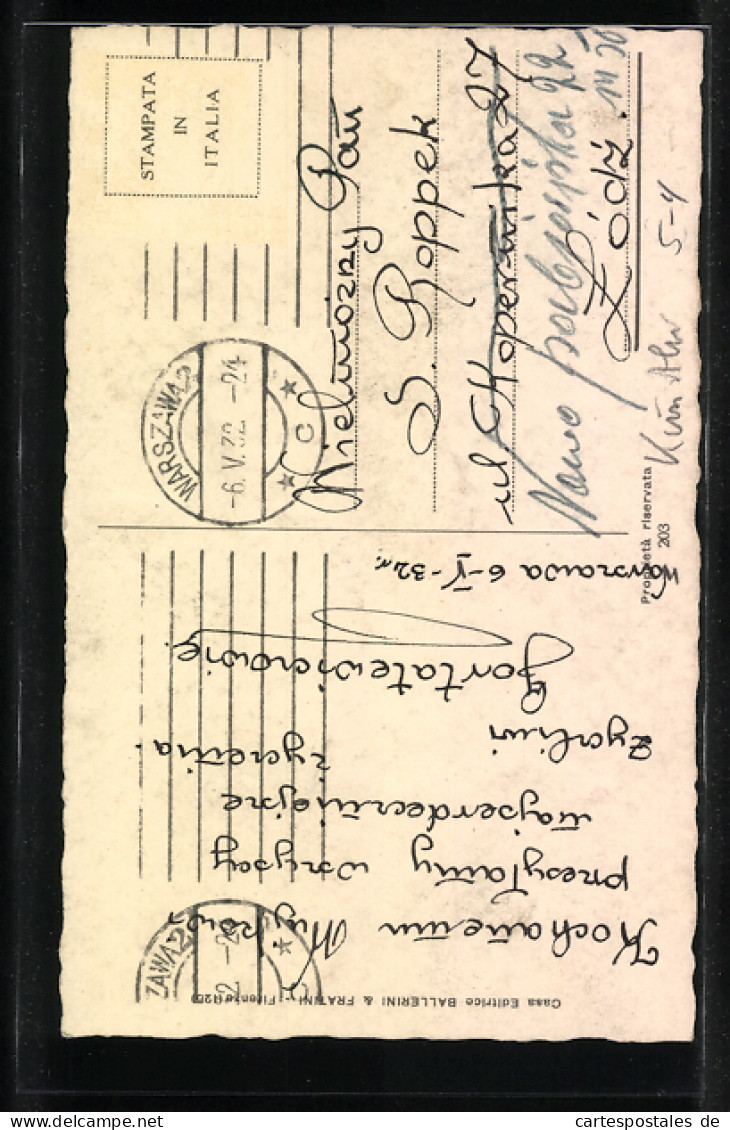 STAMPATA
IN
ITALIA
WARSZAWA 2
-6.V.32 -24
C
Wielmożny Pan
S. Roppek
ul Kopernika 27
Nowo 22
Łódź.
5-4
Proprietà riservata
203
Warszawa 6-V-32 r.
Kochanemu
przesyłamy wszyscy
najserdeczniejsze
życzenia.
Życzliwi
Gortatewiczowie.
ZAWA 2
2 -24
Casa Editrice BALLERINI & FRATINI - Firenze
cartespostales de